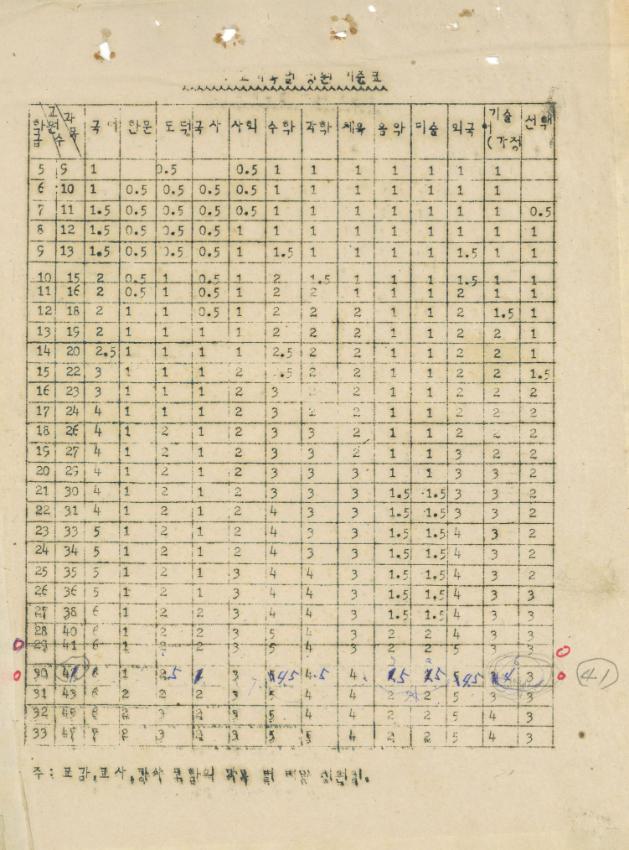 정원 기준표
학급 교원수 과목 국어 한문 도덕 국사 사회 수학 과학 체육 음악 미술 외국어 기술(가정) 선택
5 9 1 0.5 0.5 1 1 1 1 1 1 1
6 10 1 0.5 0.5 0.5 0.5 1 1 1 1 1 1 1
7 11 1.5 0.5 0.5 0.5 0.5 1 1 1 1 1 1 1 0.5
8 12 1.5 0.5 0.5 0.5 1 1 1 1 1 1 1 1 1
9 13 1.5 0.5 0.5 0.5 1 1.5 1 1 1 1 1.5 1 1
10 15 2 0.5 1 0.5 1 2 1.5 1 1 1 1.5 1 1
11 16 2 0.5 1 0.5 1 2 2 1 1 1 2 1 1
12 18 2 1 1 0.5 1 2 2 2 1 1 2 1.5 1
13 19 2 1 1 1 1 2 2 2 1 1 2 2 1
14 20 2.5 1 1 1 1 2.5 2 2 1 1 2 2 1
15 22 3 1 1 1 2 .5 2 2 1 1 2 2 1.5
16 23 3 1 1 1 2 3 2 2 1 1 2 2 2
17 24 4 1 1 1 2 3 2 2 1 1 2 2 2
18 26 4 1 2 1 2 3 3 2 1 1 2 2 2
19 27 4 1 2 1 2 3 3 2 1 1 3 2 2
20 29 4 1 2 1 2 3 3 3 1 1 3 3 2
21 30 4 1 2 1 2 3 3 3 1.5 1.5 3 3 2
22 31 4 1 2 1 2 4 3 3 1.5 1.5 3 3 2
23 33 5 1 2 1 2 4 3 3 1.5 1.5 4 3 2
24 34 5 1 2 1 2 4 3 3 1.5 1.5 4 3 2
25 35 5 1 2 1 3 4 4 3 1.5 1.5 4 3 2
26 36 5 1 2 1 3 4 4 3 1.5 1.5 4 3 3
27 38 6 1 2 2 3 4 4 3 1.5 1.5 4 3 3
28 40 6 1 2 2 3 5 4 3 2 2 4 3 3
29 41 6 1 2 2 3 5 4 3 2 2 5 3 3
30 6 1 3 4.5 4 3 41
31 43 6 2 2 2 3 5 4 4 2 2 5 3 3
32 2 3 2 3 5 4 4 2 2 5 4 3
33 2 3 2 3 5 5 4 2 2 5 4 3
주: 교감, 교사, 강사